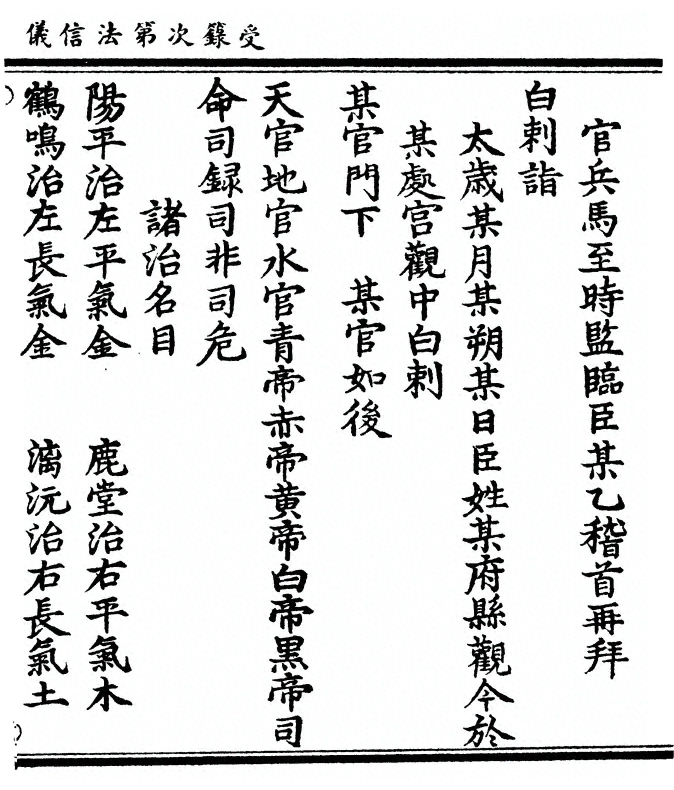 受籙次第法信儀
官兵馬至時監臨臣某乙稽首再拜
白剌詣
太歲某月某朔某日臣姓某府縣觀今於
某處宮觀中白剌
某官門下　某官如後
天官地官水官青帝赤帝黃帝白帝黑帝司
命司録司非司危
諸治名目
陽平治左平氣金　鹿堂治右平氣木
鶴鳴治左長氣金　漓沅治右長氣土